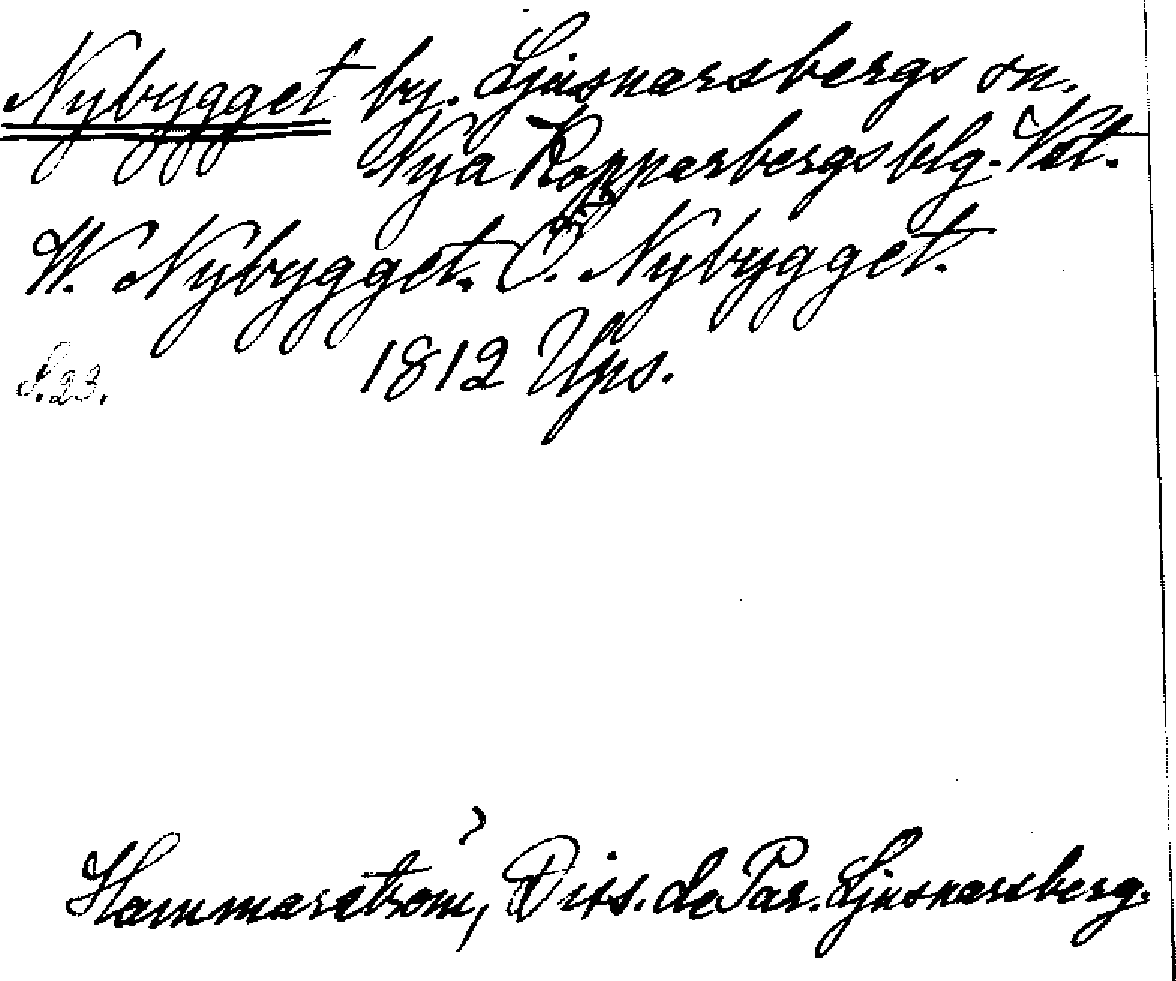 Nybygget by. Ljusnarsbergs sn.
Nya Kopparbergs blg. Vstm.
W. Nybygget. Ö. Nybygget.
S. 23. 1812 Ups.
Hammarström, Diss. de Par. Ljusnarsberg.